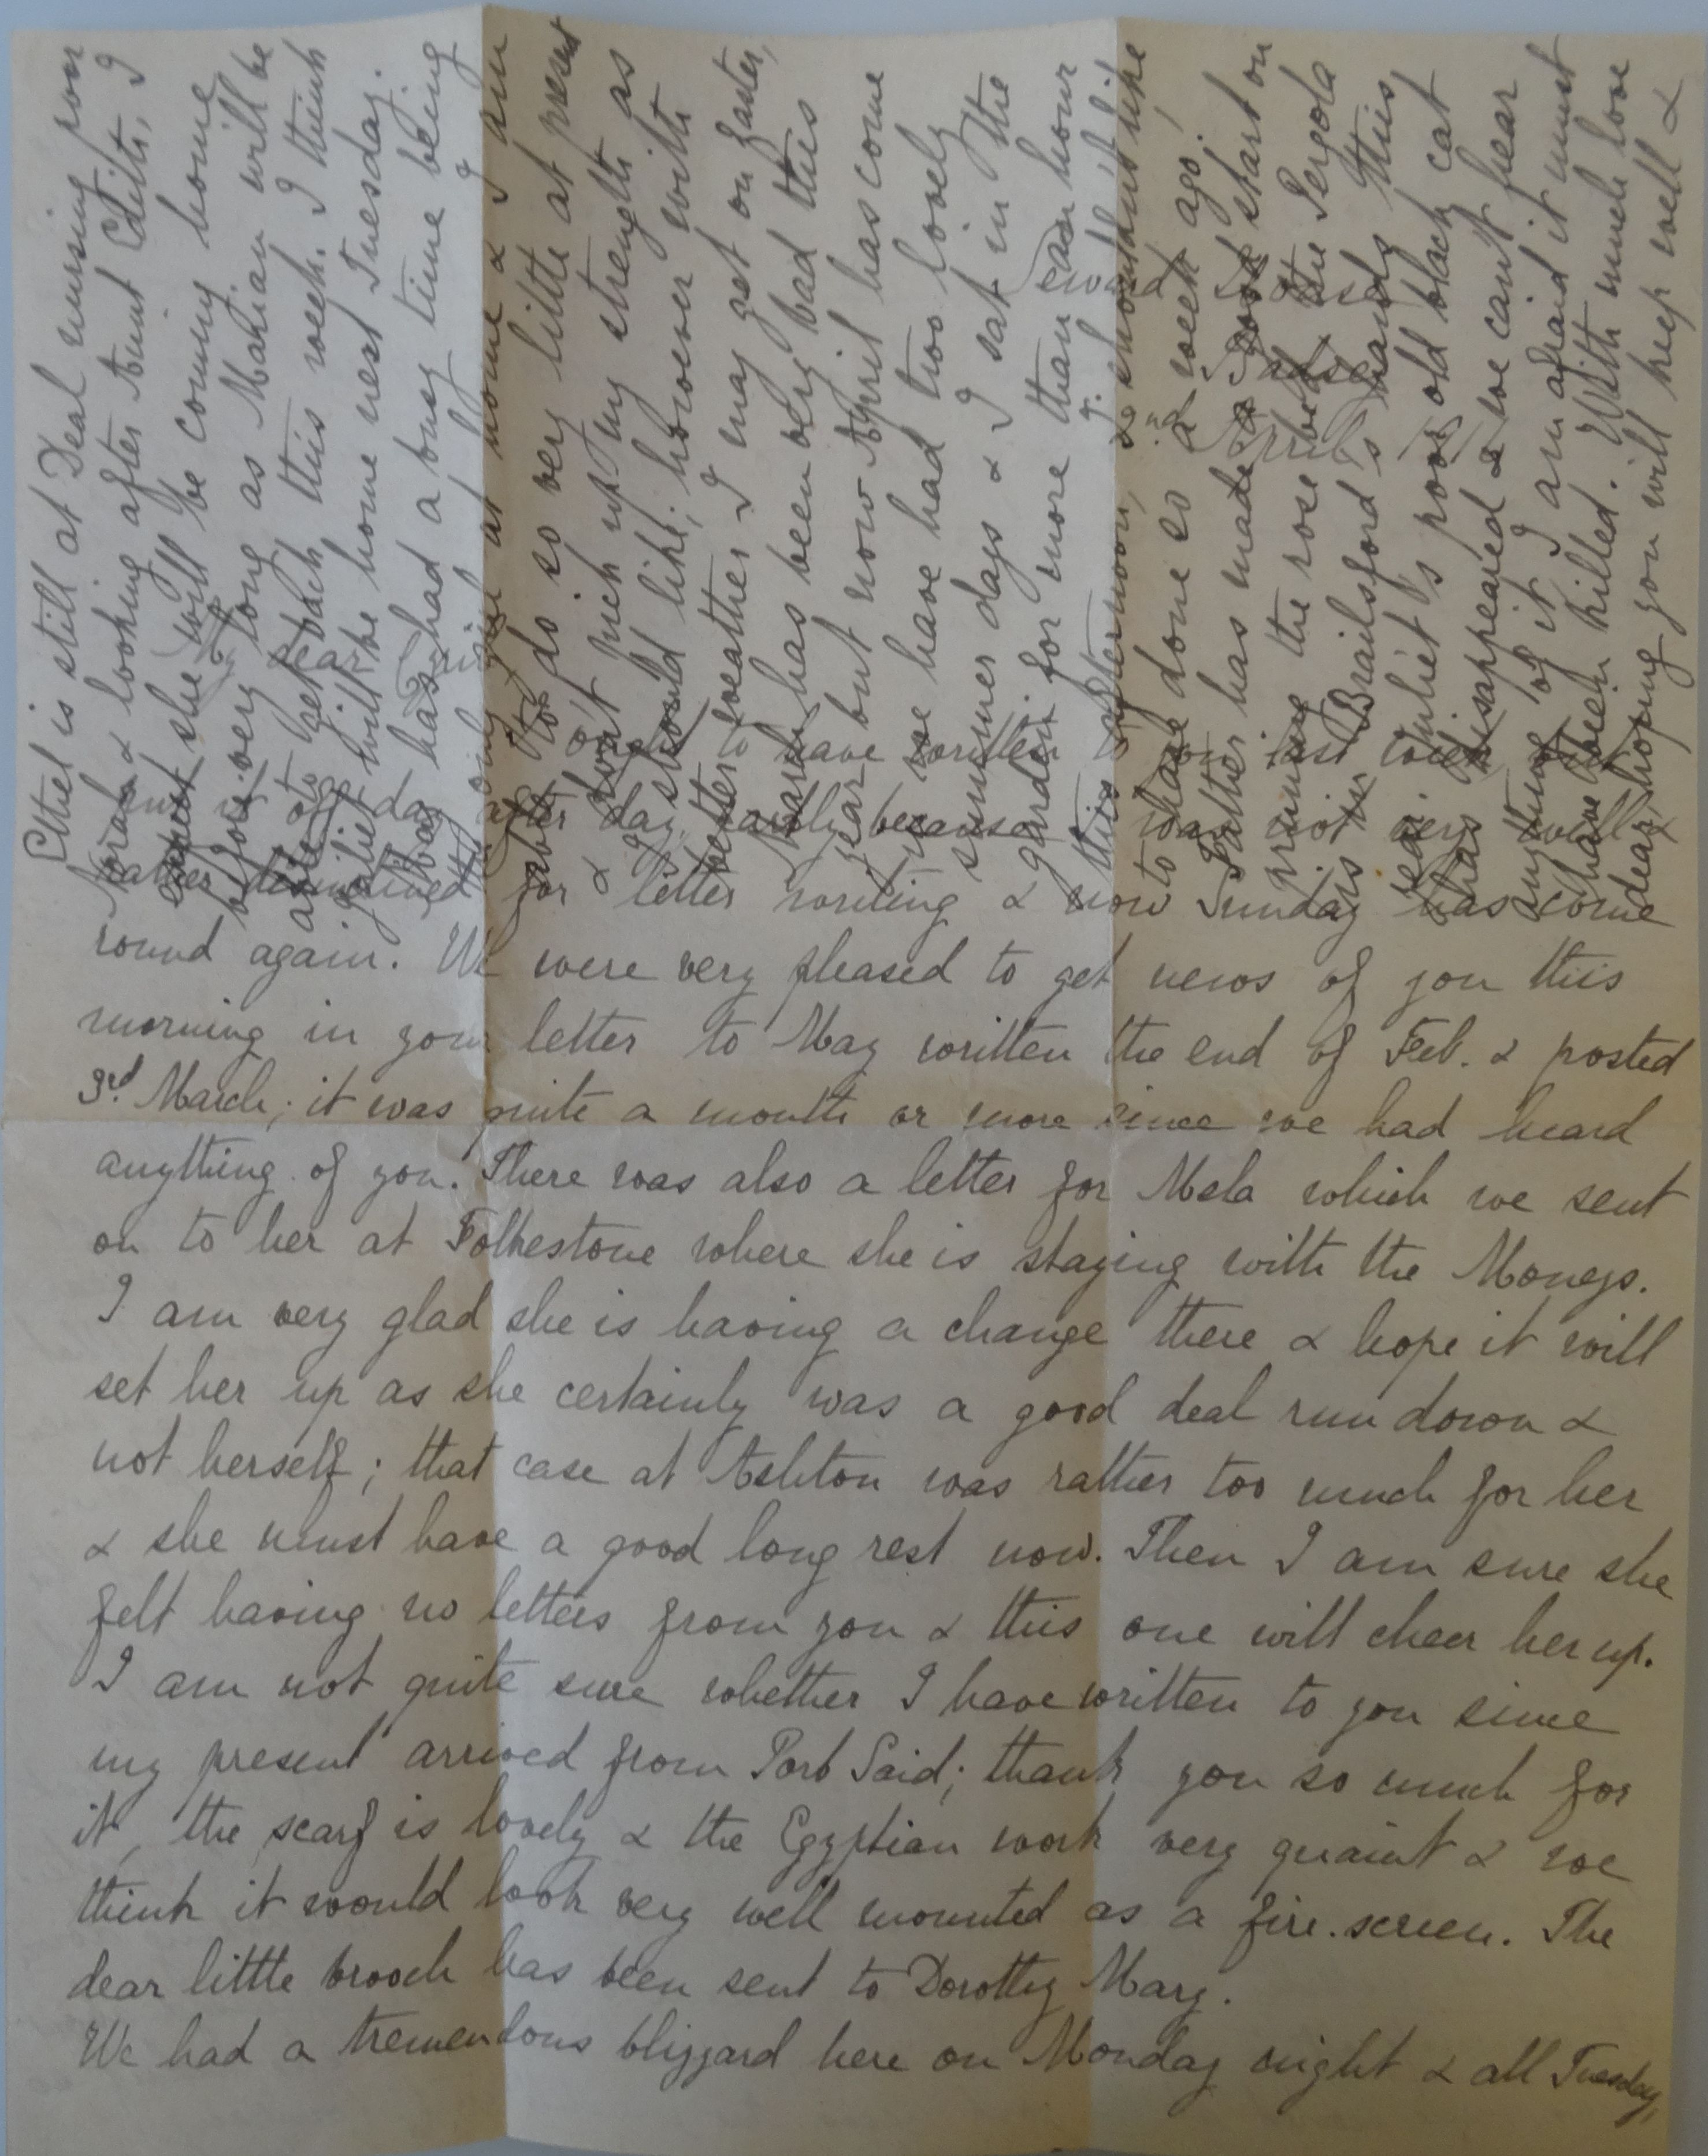 Seward House
Badsey
2nd April
My dear
ought to have written to you last week but
put it off day after day, partly because I was not very well &
rather disinclined for letter writing & now Sunday has come
round again. We were very pleased to get news of you this
morning in your letter to May written the end of Feb. & posted
3rd March; it was quite a month or more since we had heard
anything of you. There was also a letter for Mela which we sent
on to her at Folkestone where she is staying with the Moneys.
I am very glad she is having a change there & hope it will
set her up as she certainly was a good deal run down &
not herself; that case at Ashton was rather too much for her
& she must have a good long rest now. Then I am sure she
felt having no letters from you & this one will cheer her up.
I am not quite sure whether I have written to you since
my present arrived from Port Said; thank you so much for
it, the scarf is lovely & the Egyptian work very quaint & we
think it would look very well mounted as a fire-screen. The
dear little brooch has been sent to Dorothy Mary.
We had a tremendous blizzard here on Monday night & all Tuesday,
Ethel is still at Deal nursing poor
Norah & looking after Aunt Edith, I
expect she will be coming home
before very long as Marian will be
able to get back this week. I think
Juliet will be home next Tuesday.
May has had a busy time being
only one at home & I am
able to do so very little at present
& don't pick up my strength as
I should like; however with
better weather I may get on faster,
March has been very bad this
year but now April has come
we have had two lovely
summer days & I sat in the
garden for more than an hour
this afternoon,
to have done so a week ago.
Father has made a good start on
pruning the rose bed & the Pergola
is in Brailsford's hands this
year. Juliet's poor old black cat
has disappeared & we can't hear
anything of it, I am afraid it must
have been killed. With much love
dear, hoping you will keep well &